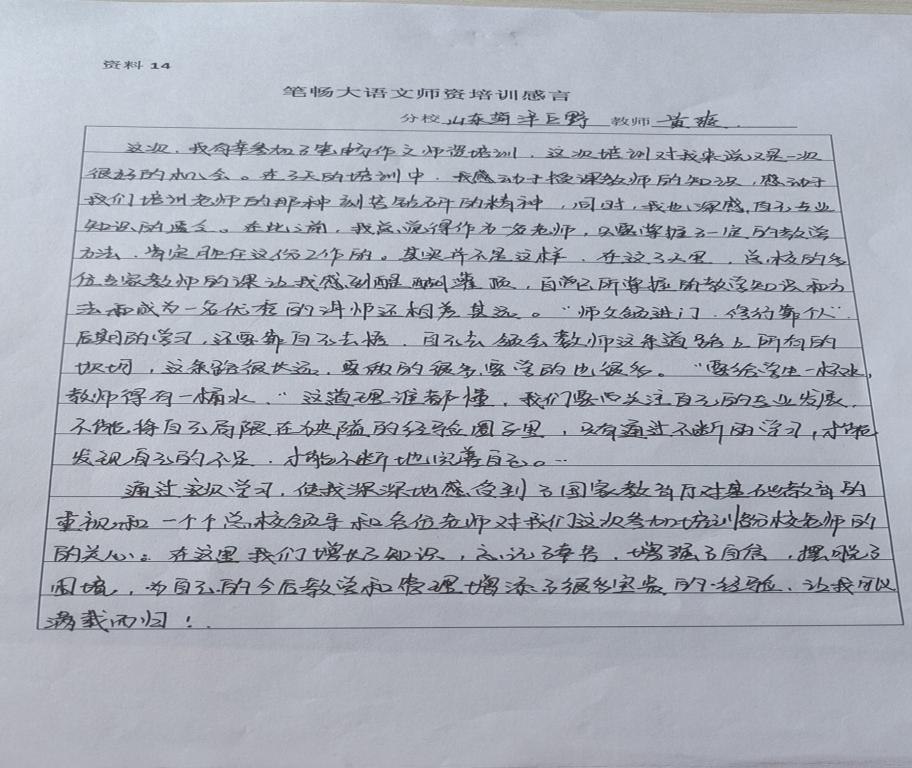 资料 14
笔畅大语文师资培训感言
分校 山东菏泽巨野 教师 黄
这次，我有幸参加了笔畅作文师资培训，这次培训对我来说又是一次
很好的机会。在3天的培训中，我感动于授课教师的知识，感动于
我们培训老师的那种刻苦钻研的精神，同时，我也深感自己专业
知识的匮乏。在此之前，我总觉得作为一名老师，只要掌握了一定的教学
方法，肯定胜任这份工作的。其实并不是这样，在这3天里，总校的多
位专家教师的课让我感到醍醐灌顶，自己所掌握的教学知识和方
法要成为一名优秀的讲师还相差甚远。“师父领进门，修行靠个人”
后期的学习，还要靠自己去悟，自己去领会教师这条道路上所有的
一切，这条路很长远，要做的很多，要学的也很多。“要给学生一杯水，
教师得有一桶水，”这道理谁都懂，我们要多关注自己的专业发展，
不能将自己局限在狭隘的经验圈子里，只有通过不断的学习，才能
发现自己的不足，才能不断地完善自己。
通过这次学习，使我深深地感受到了国家教育厅对基础教育的
重视和一个个总校领导和各位老师对我们这次参加培训的分校老师的
的关心。在这里我们增长了知识，忘记了辛劳，增强了自信，摆脱了
困境，为自己的今后教学和管理增添了很多宝贵的经验，让我可以
满载而归！